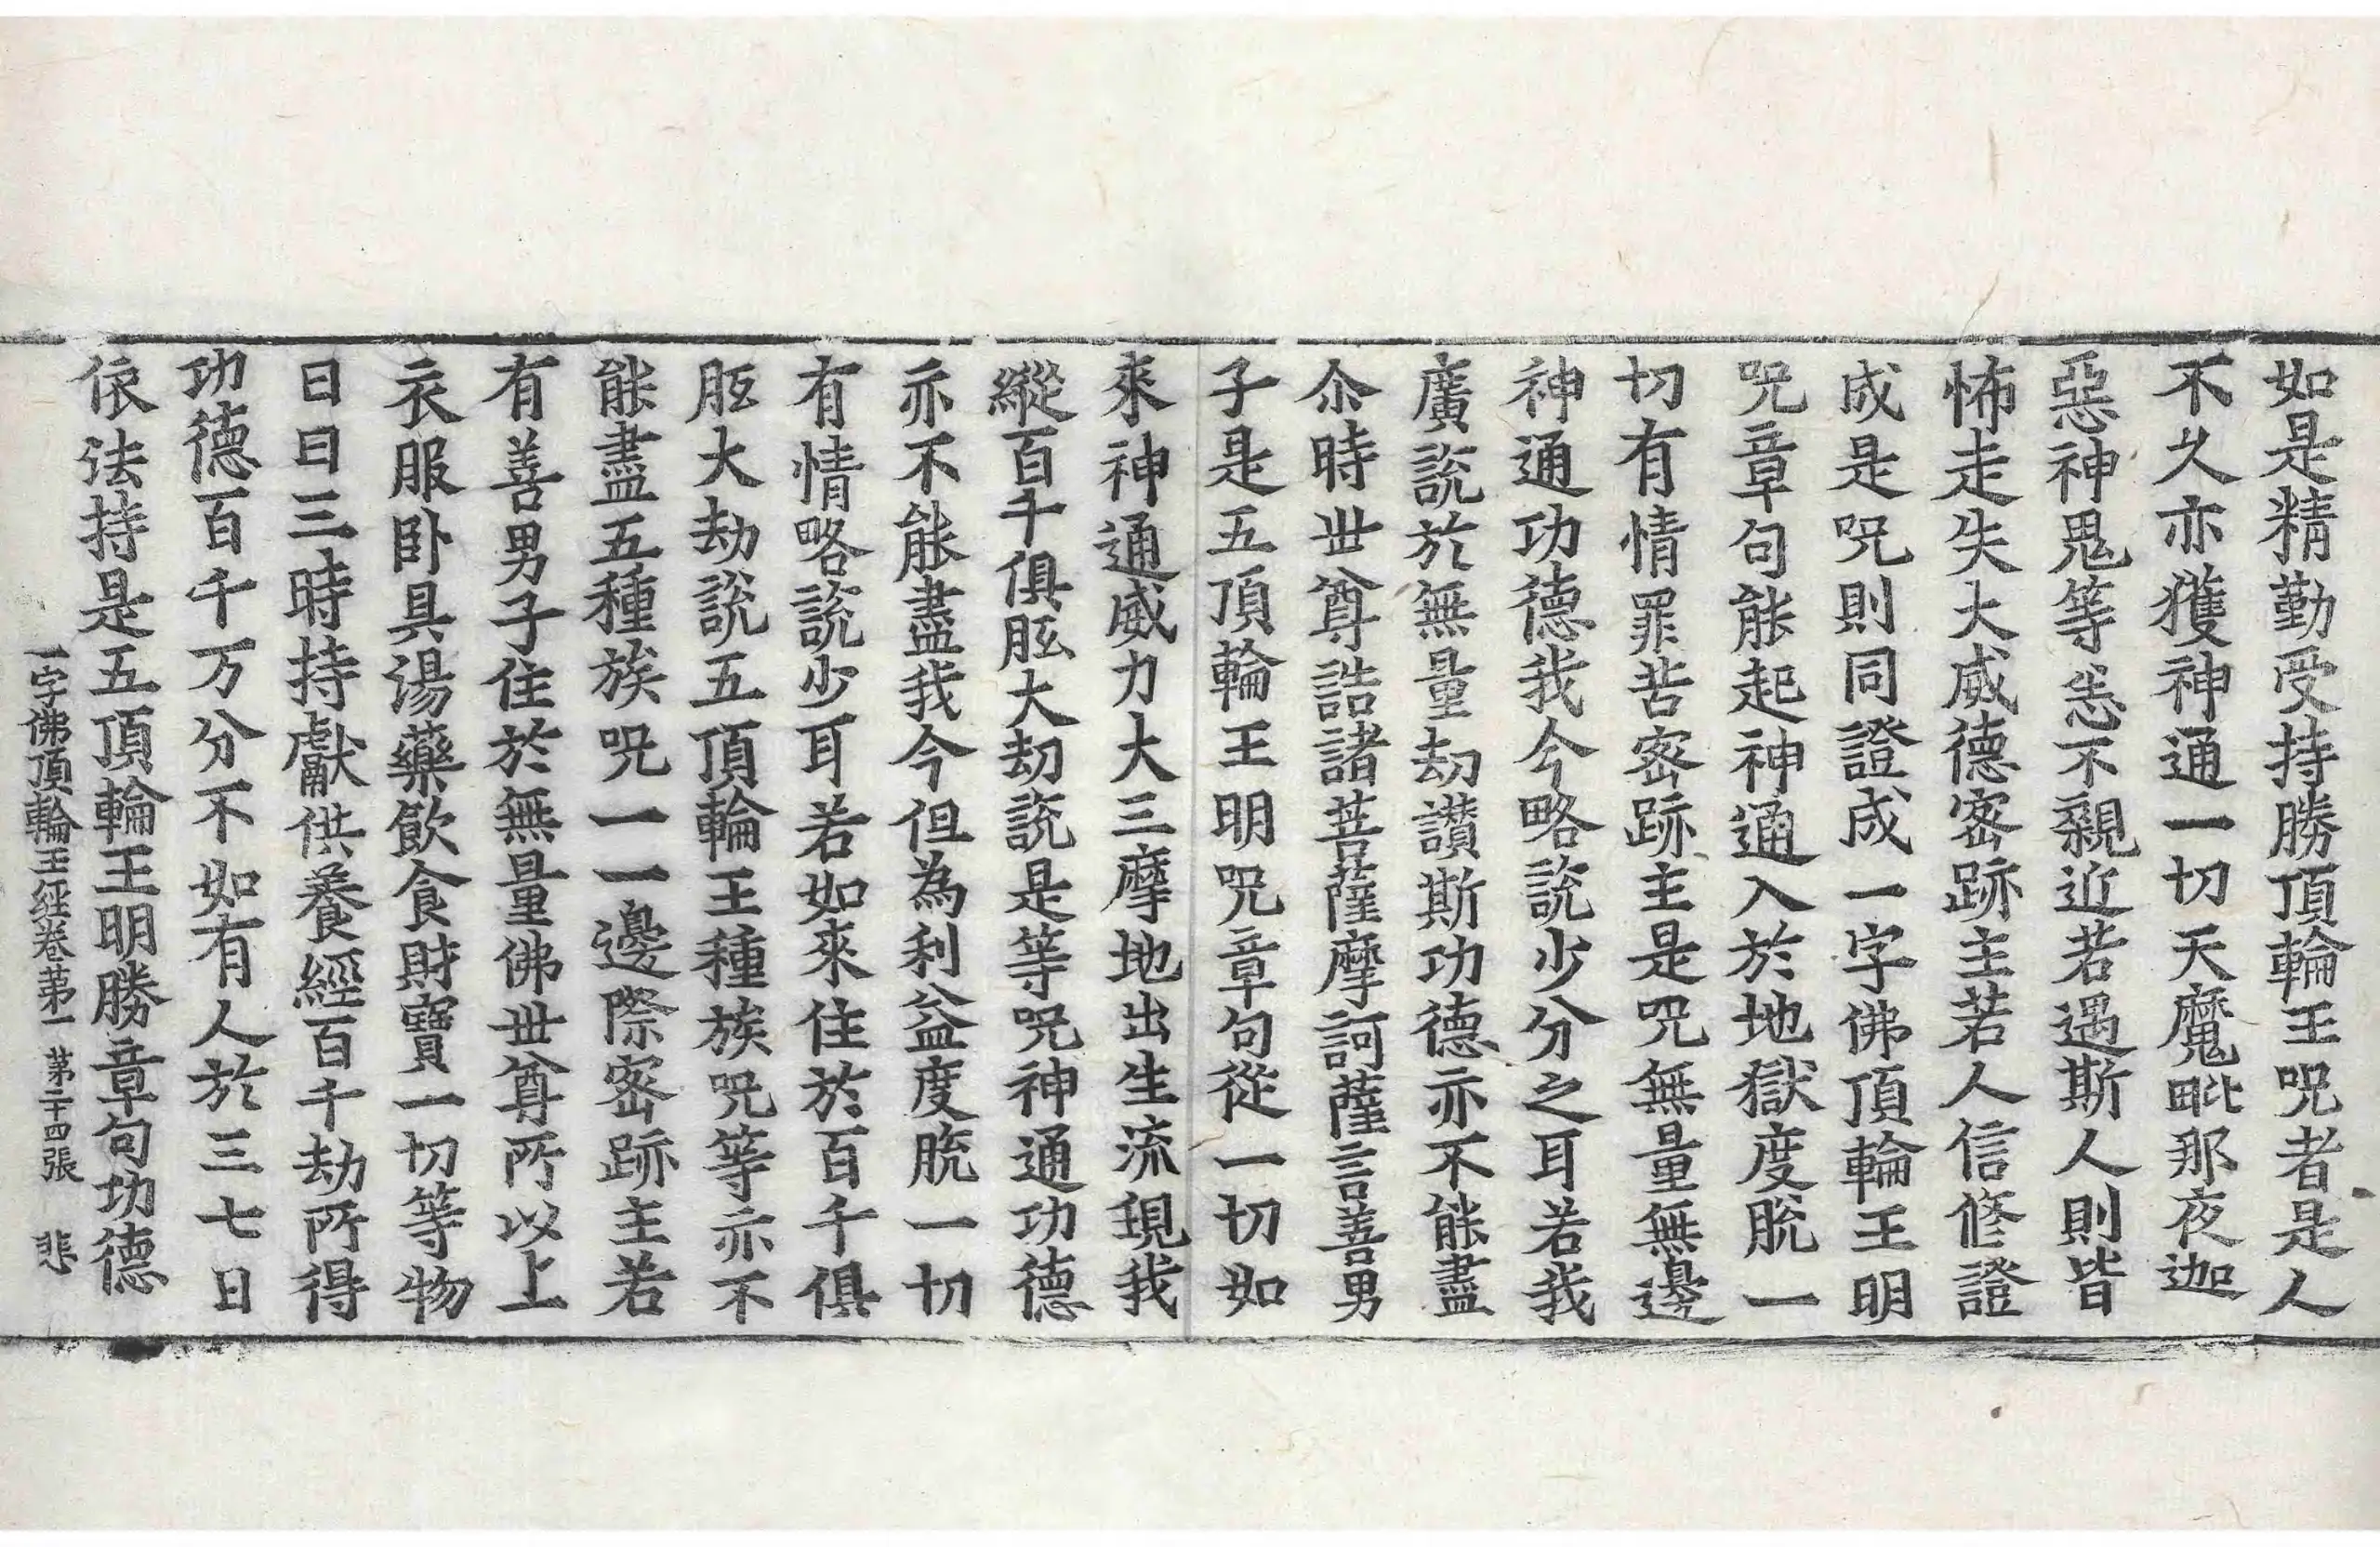 如是精勤受持勝頂輪王呪者是人
不久亦獲神通一切天魔毗那夜迦
惡神鬼等恙不親近若遇斯人則皆
怖走失大威德密跡主若人信修證
成是呪則同證成一字佛頂輪王明
呪章句能起神通入於地獄度脫一
切有情罪苦密跡主是呪無量無邊
神通功德我今略說少分之耳若我
廣說於無量劫讚斯功德亦不能盡
尒時世尊誥諸菩薩摩訶薩言善男
子是五頂輪王明呪章句從一切如
來神通威力大三摩地出生流現我
縱百千俱胝大劫說是等呪神通功德
亦不能盡我今但為利益度脫一切
有情略說少耳若如來住於百千俱
胝大劫說五頂輪王種族呪等亦不
能盡五種族呪一一邊際密跡主若
有善男子住於無量佛世尊所以上
衣服卧具湯藥飲食財寶一切等物
日日三時持獻供養經百千劫所得
功德百千万分不如有人於三七日
依法持是五頂輪王明勝章句功德
一字佛頂輪王經卷苐一 苐二十四張 悲